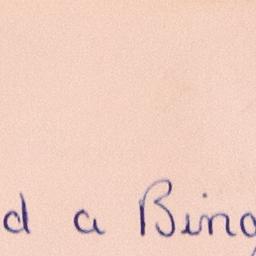 d a Bing